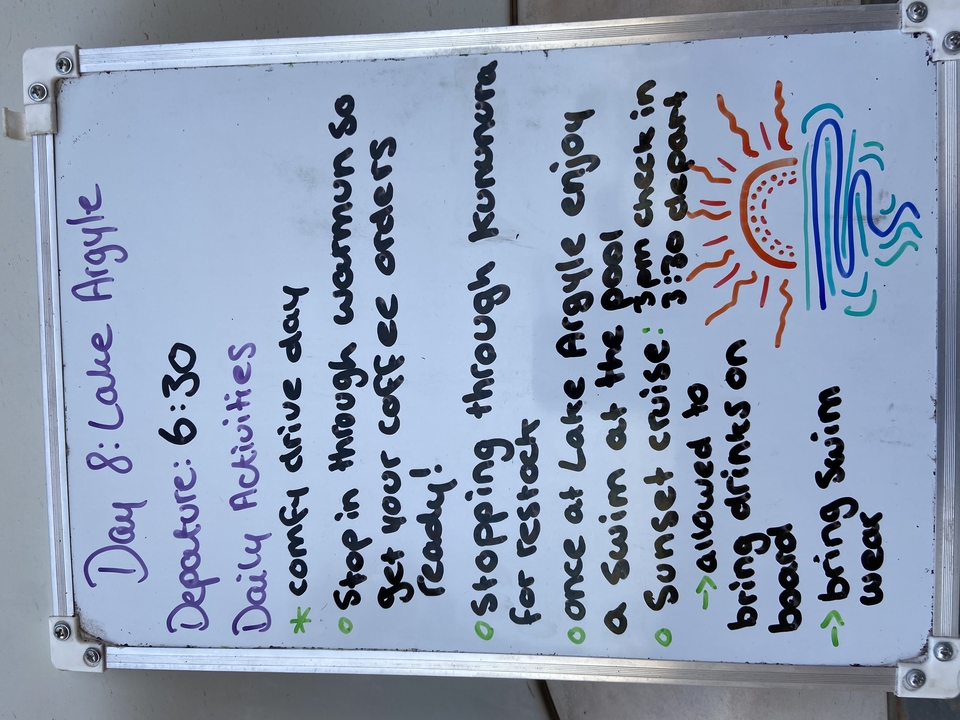 Day 8: Lake Argyle
Depature: 6:30
Daily Activities
* comfy drive day
o Stop in through warmun so
get your coffee orders
ready!
o Stopping through Kununura
for restock
o once at Lake Argyle enjoy
a swim at the pool
o Sunset cruise: 3pm check in
3:30 depart
-> allowed to
bring drinks on
board
-> bring swim
wear